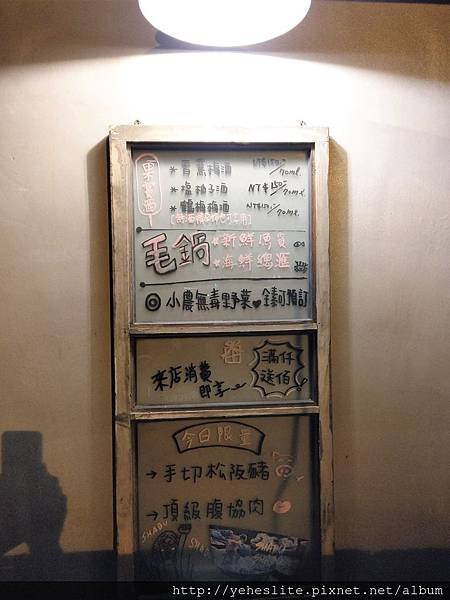 果實酒
*香蕉梅酒 NT$150/70ml
*塩柚子酒 NT$150/70ml
*鶴梅梅酒 NT$150/70ml
毛鍋 *新鮮漁貨
*海鮮總滙
◎小農無毒野菜♥鍊可預訂
來店消費
即享
滿仟
送佰
今日限量
→手切松阪豬
→頂級腹協肉
SHABU
SHABU
http://yeheslite.pixnet.net/album